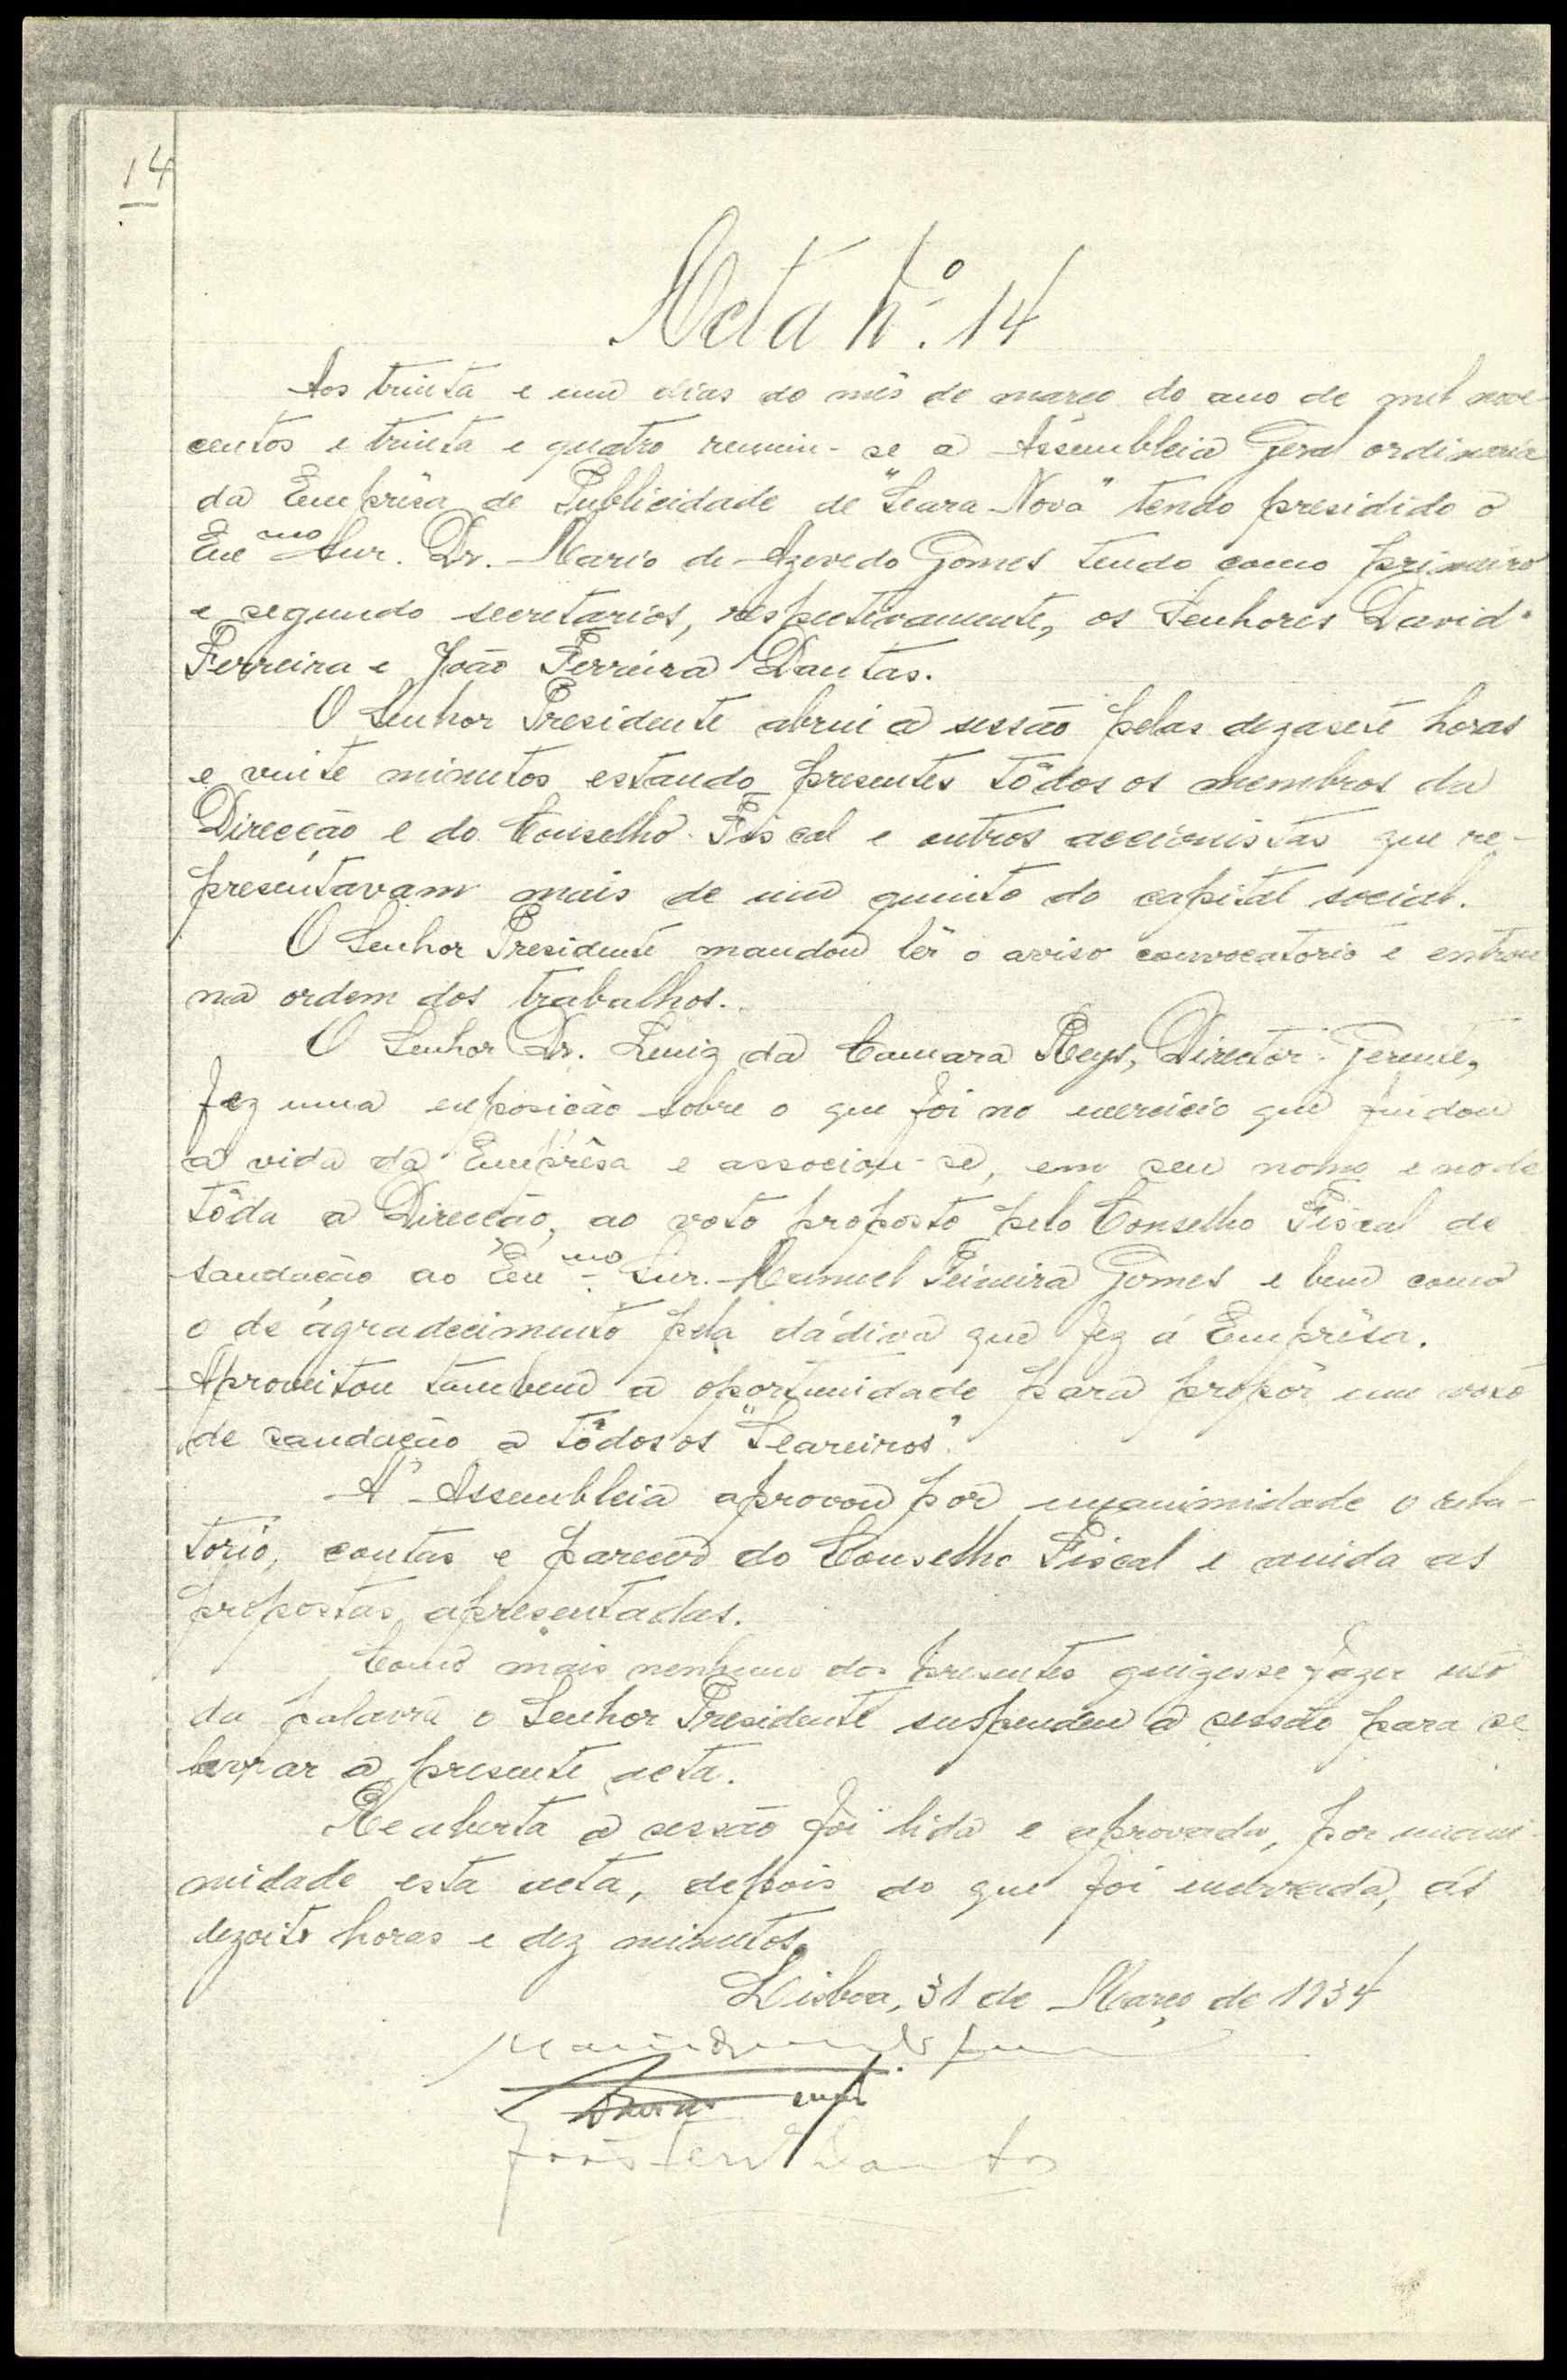 14
Acta n.º 14
Aos trinta e um dias do mês de março do ano de mil nove-
centos e trinta e quatro reuniu-se a Assembleia Geral ordinaria
da Emprêsa de Publicidade de "Seara Nova" tendo presidido o
Exmo Snr. Dr. Mario de Azevedo Gomes tendo como primeiro
e segundo secretarios, respectivamente, os Senhores David
Ferreira e João Ferreira Dantas.
O Senhor Presidente abriu a sessão pelas dezasete horas
e vinte minutos estando presentes tôdos os membros da
Direcção e do Conselho Fiscal e outros accionistas que re-
presentavam mais de um quinto do capital social.
O Senhor Presidente mandou lêr o aviso convocatorio e entrou
na ordem dos trabalhos.
O Senhor Dr. Luiz da Camara Reys, Director-Gerente,
fez uma exposição sobre o que foi no exercicio que findou
a vida da Emprêsa e associou-se, em seu nome e no de
tôda a Direcção, ao voto proposto pelo Conselho Fiscal de
saudação ao Exmo Snr. Manuel Teixeira Gomes e bem como
o de agradecimento pela dádiva que fez á Emprêsa.
Aproveitou tambem a oportunidade para propôr um voto
de saudação a tôdos os "Seareiros".
A Assembleia aprovou por unanimidade o rela-
torio, contas e parecer do Conselho Fiscal e ainda as
propostas apresentadas.
Como mais nenhum dos presentes quizesse fazer uso
da palavra o Senhor Presidente suspendeu a sessão para se
lavrar a presente acta.
Reaberta a sessão foi lida e aprovada, por unani-
midade esta acta, depois do que foi encerrada, ás
dezoito horas e dez minutos.
Lisboa, 31 de Março de 1934
João Ferr Dantas